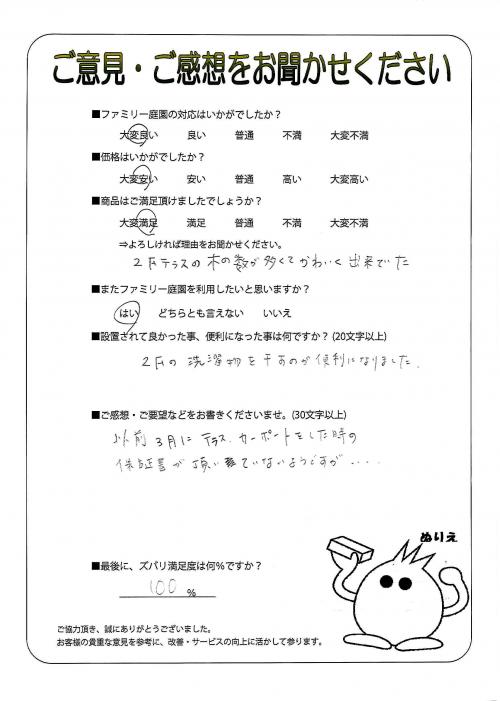 ご意見・ご感想をお聞かせください
■ファミリー庭園の対応はいかがでしたか？
大変良い 良い 普通 不満 大変不満
■価格はいかがでしたか？
大変安い 安い 普通 高い 大変高い
■商品はご満足頂けましたでしょうか？
大変満足 満足 普通 不満 大変不満
⇒よろしければ理由をお聞かせください。
2Fテラスの木の数が多くてかわいく出来でいた
■またファミリー庭園を利用したいと思いますか？
はい どちらとも言えない いいえ
■設置されて良かった事、便利になった事は何ですか？(20文字以上)
2Fの洗濯物を干すのが便利になりました.
■ご感想・ご要望などをお書きくださいませ。(30文字以上)
以前3月にテラス.カーポートをした時の
保証書が頂いていないようですが....
ぬりえ
■最後に、ズバリ満足度は何%ですか？
100 %
ご協力頂き、誠にありがとうございました。
お客様の貴重な意見を参考に、改善・サービスの向上に活かして参ります。